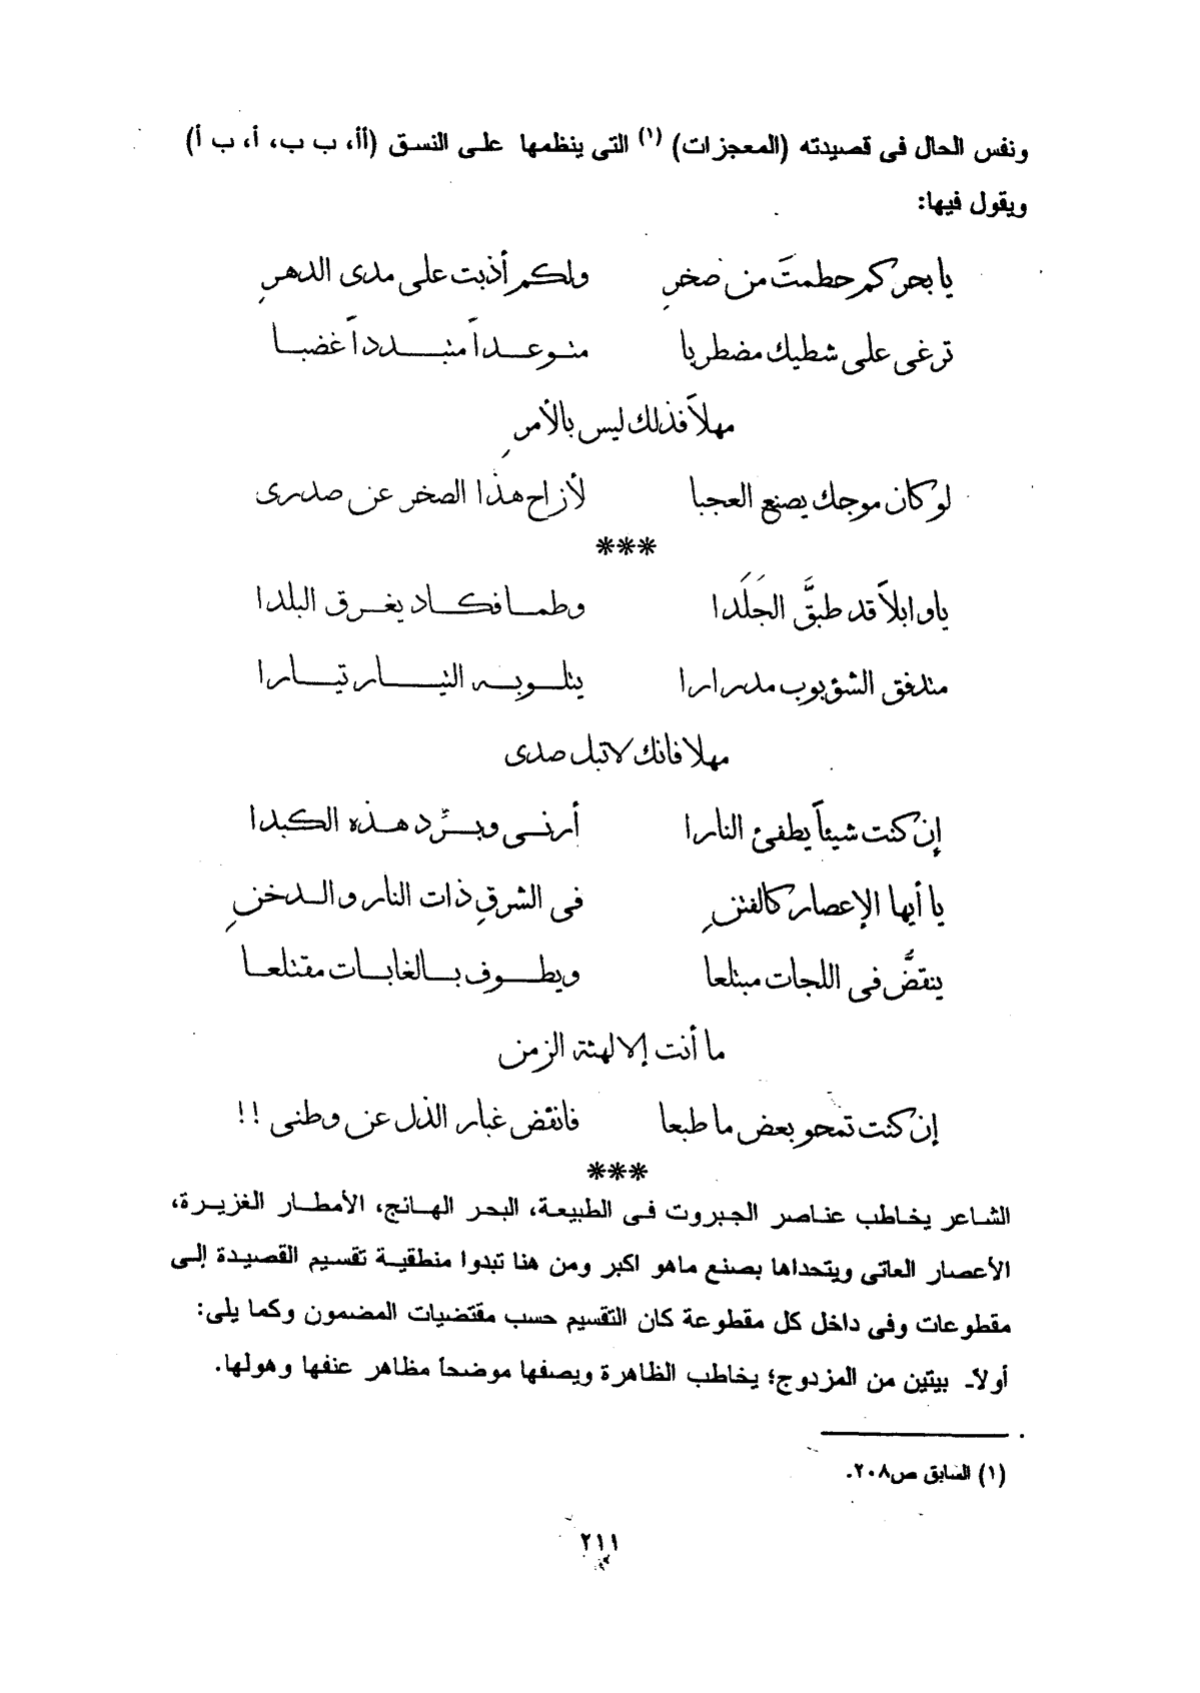 ونفس الحال فى قصيدته (المعجزات) (١) التى ينظمها على النسق (أأ، ب ب، أ، ب أ)
ويقول فيها:
يا بحر كم حطمتَ من صخرِ ولكم أذبت على مدى الدهرِ
ترغى على شطيك مضطربا متوعداً متبدداً غضبا
مهلاً فذلك ليس بالأمرِ
لو كان موجك يصنع العجبا لأزاح هذا الصخر عن صدرى
***
يا وابلاً قد طبقَّ الجَلَدا وطما فكاد يغرق البلدا
متدفق الشؤبوب مدرارا يتلو به التيار تيارا
مهلا فانك لا تبل صدى
إن كنت شيئاً يطفئ النارا أرنى وبرِّد هذه الكبدا
يا أيها الإعصار كالفتنِ فى الشرقِ ذات النار والدخنِ
ينقضُّ فى اللجات مبتلعا ويطوف بالغابات مقتلعا
ما أنت إلا لهثة الزمن
إن كنت تمحو بعض ما طبعا فانفض غبار الذل عن وطنى !!
***
الشاعر يخاطب عناصر الجبروت فى الطبيعة، البحر الهائج، الأمطار الغزيرة،
الأعصار العاتى ويتحداها بصنع ماهو اكبر ومن هنا تبدوا منطقية تقسيم القصيدة إلى
مقطوعات وفى داخل كل مقطوعة كان التقسيم حسب مقتضيات المضمون وكما يلى:
أولاً- بيتين من المزدوج؛ يخاطب الظاهرة ويصفها موضحاً مظاهر عنفها وهولها.
(١) السابق ص٢٠٨.
٢١١